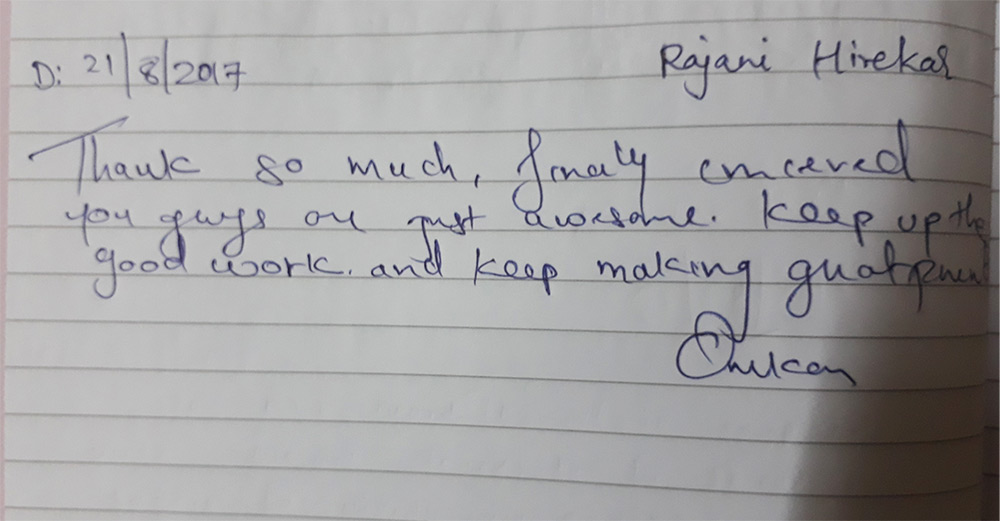 D: 21/8/2017
Rajani Hirekar
Thank so much, finaly
you guys are just awesome. Keep up the
good work. and keep making